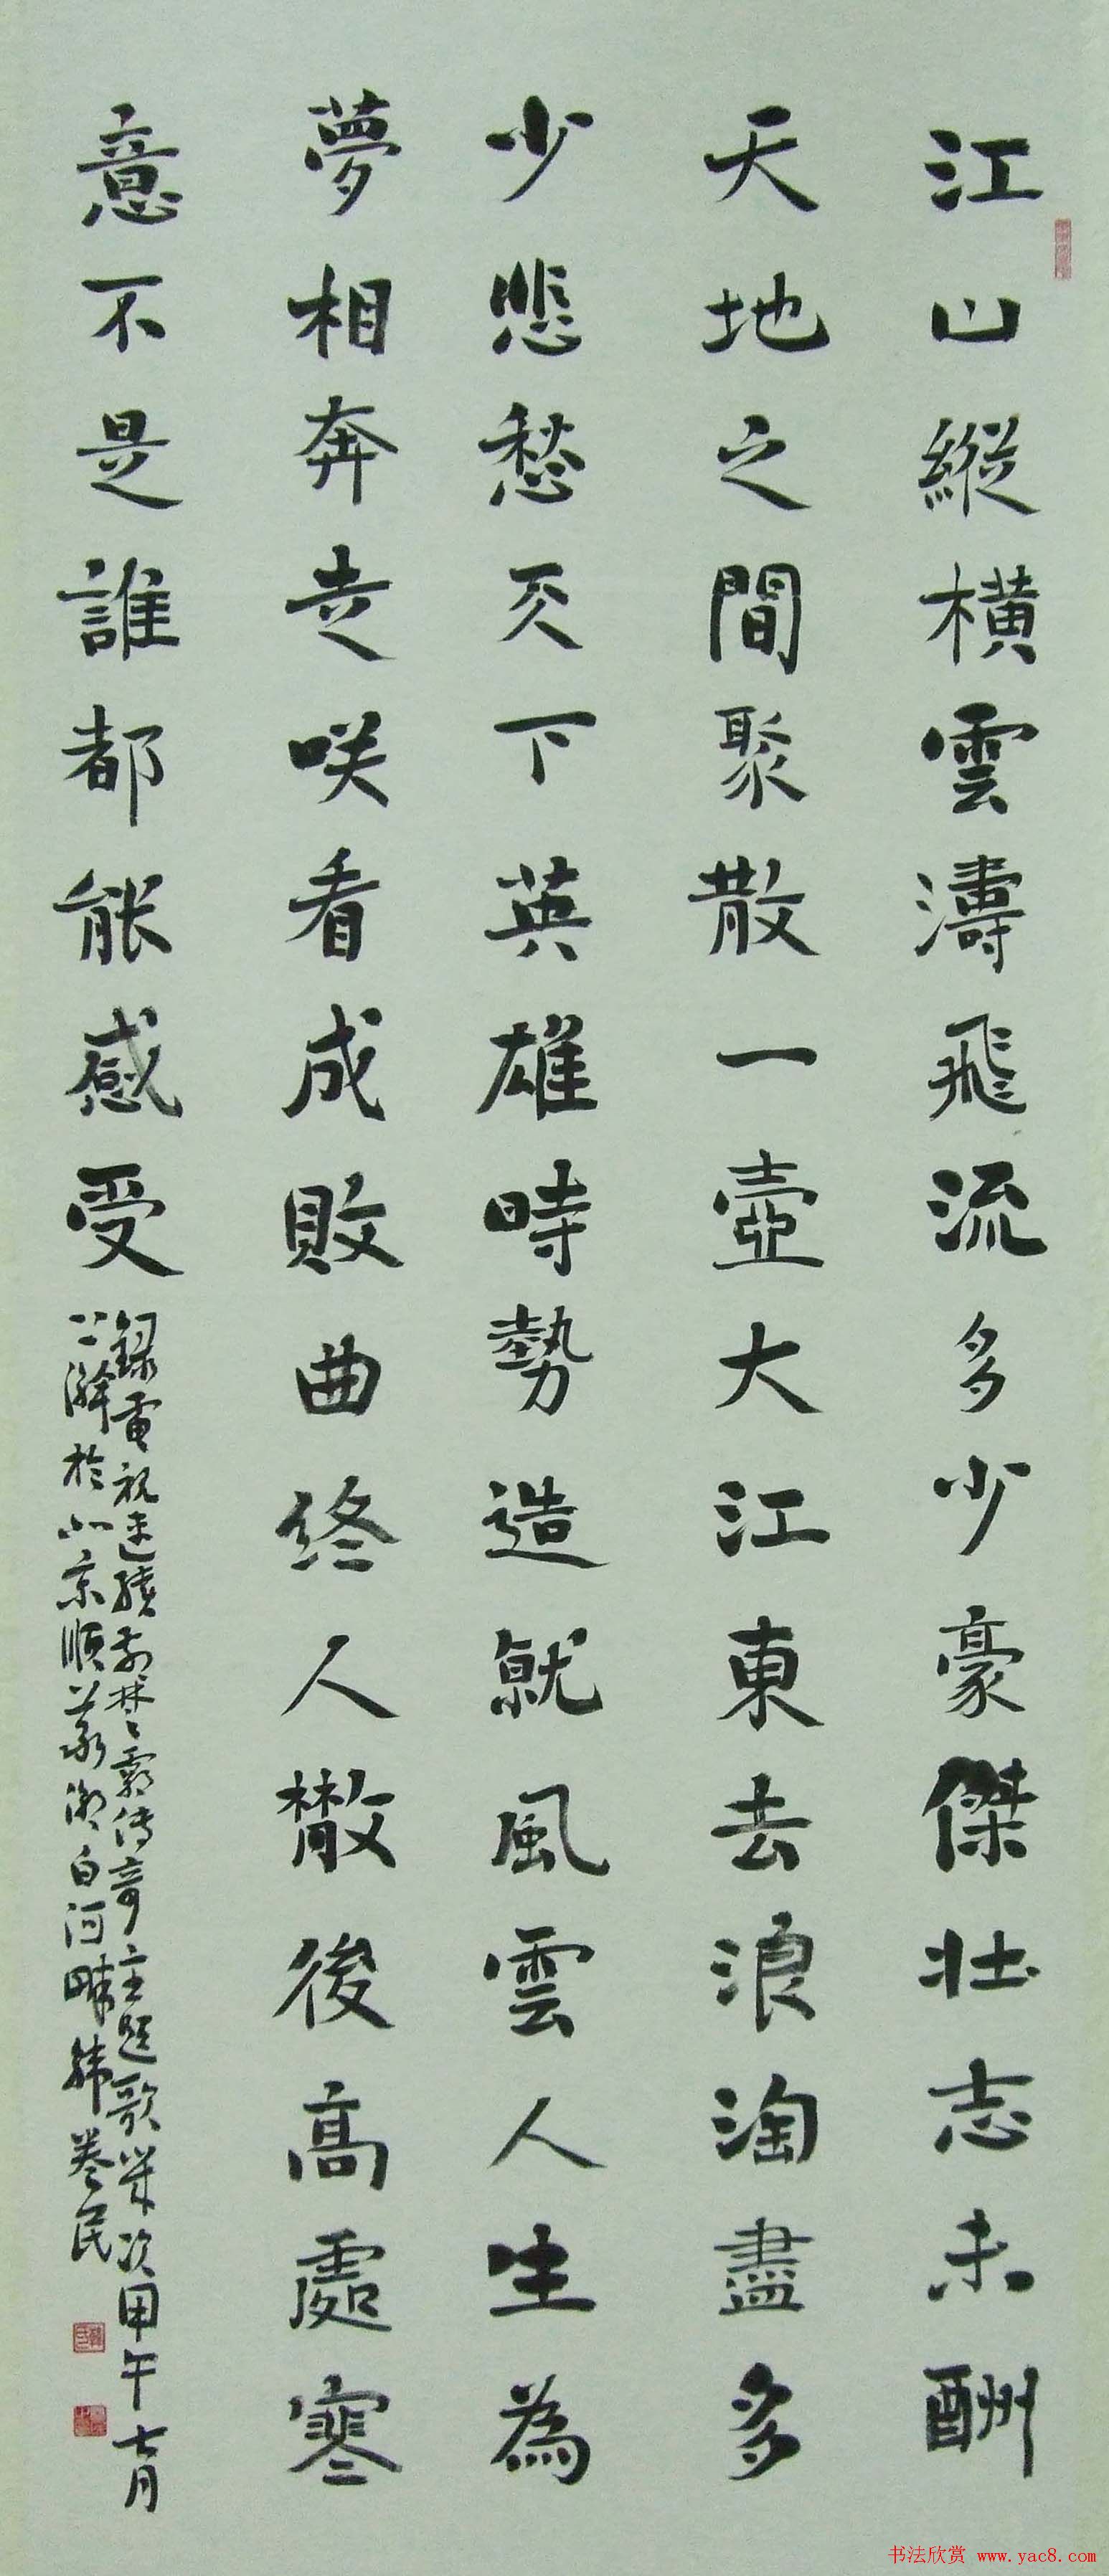 江山縱横雲濤飛流多少豪傑壯志未酬
天地之間聚散一壺大江東去浪淘盡多
少悲愁天下英雄時勢造就風雲人生為
夢相奔走咲看成敗曲終人散後高處寒
意不是誰都能感受
録電視連續劇楚霸传奇主題歌歲次甲午七月
上澣於北京順義潮白河畔韩叁民
书法欣赏 www.yac8.com